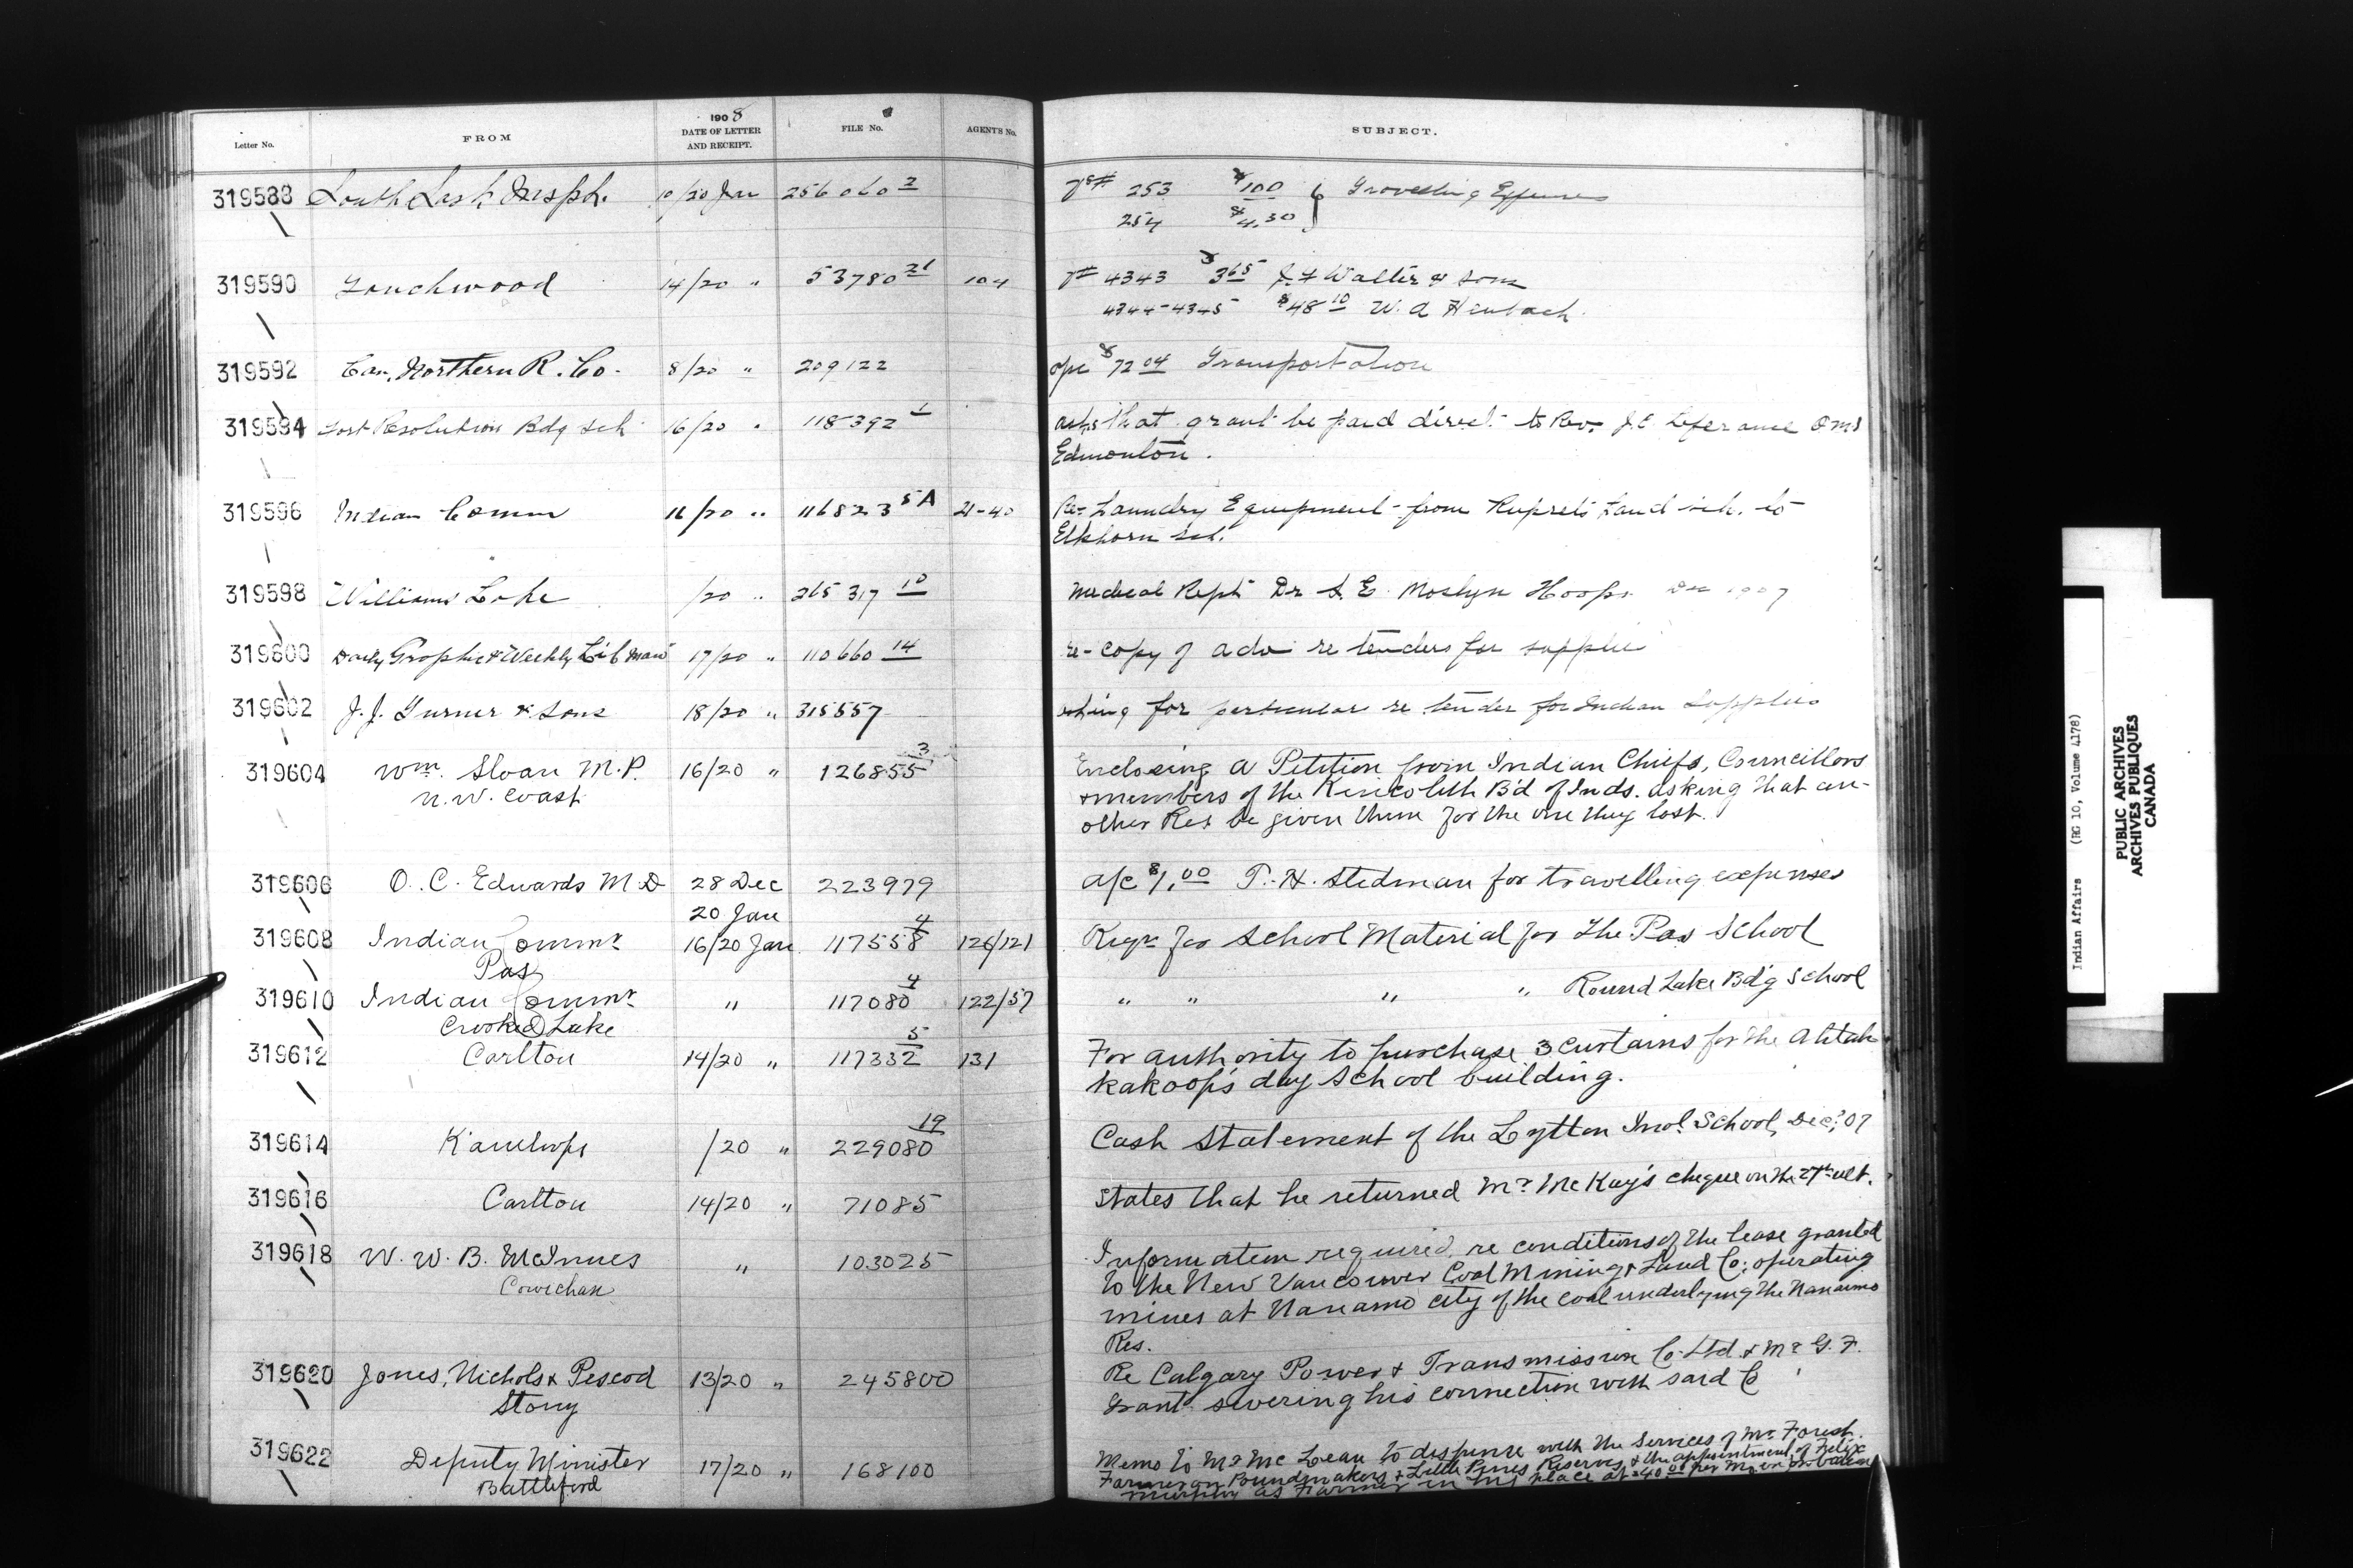 Letter No. FROM 1908 DATE OF LETTER AND RECEIPT. FILE No. AGENTS No. SUBJECT.
319588 South Sask Inspts. 10/20 Jan 256060 2 253 $100 } Travelling Expenses
254 $4.30
319590 Touchwood 14/20 " 53780 21 104 4343 $3 65 Walter & Sons
$48 10 W. A Heubach
319592 Can. Northern R. Co. 8/20 " 209122 a/c $72 04 Transportation
319594 Fort Resolution Bdg Sch 16/20 " 118392 1 asks that grant be paid direct to Rev. J. E. OMI
Edmonton.
319596 Indian Comm 16/20 " 116823 5A 21-40 Re Laundry Equipment from Ruperts Land sch. to
Elkhorn Sch.
319598 Williams Lake /20 " 265317 10 Medical Rept Dr S. E. Mostyn Hoops Dec 1907
319600 Daily Graphic & Weekly 17/20 " 110660 14 re-copy of adv re tenders for supplies
319602 J. J. Turner & Sons 18/20 " 315557 asking for particulars re tender for Indian Supplies
319604 Wm. Sloan M.P. 16/20 " 126855 3 Enclosing a Petition from Indian Chiefs, Councillors
N. W. Coast & members of the Kincolith B'd of Inds. asking that an-
other Res be given them for the one they lost.
319606 O. C. Edwards M.D 28 Dec 223979 a/c $1.00 P. H. Stedman for travelling expenses
20 Jan
319608 Indian Commr 16/20 Jan. 117558 4 126/121 Reqn for School Material for The Pas School
Pas
319610 Indian Commr " 117080 4 122/57 " " " " Round Lake Bd'g School
Crooked Lake
319612 Carlton 14/20 " 117332 5 131 For authority to purchase 3 curtains for the Ahtah-
kakoop's day School building.
319614 Kamloops /20 " 229080 19 Cash Statement of the Lytton Indl. School, Dec, '07
319616 Carlton 14/20 " 71085 States that he returned Mr McKay's cheque on the 27th ult.
319618 W. W. B. McInnes " 103025 Information required re conditions of the lease granted
Cowichan to the New Vancouver Coal Mining & Land Co. operating
mines at Nanamo city of the coal underlying the Nanaimo
Res.
319620 Jones, Nichols & Pescod 13/20 " 245800 Re Calgary Power & Transmission Co. Ltd. & Mr G. F.
Stony Grant severing his connection with said Co
319622 Deputy Minister 17/20 " 168100 Memo to Mr McLean to dispense with the services of Mr Forest.
Battleford Farmer on Poundmakers & Little Pines Reserves & the appointment of Felix
Murphy as Farmer in his place at $40 00 per Mo. on
Indian Affairs (RG 10, Volume 4178)
PUBLIC ARCHIVES
ARCHIVES PUBLIQUES
CANADA